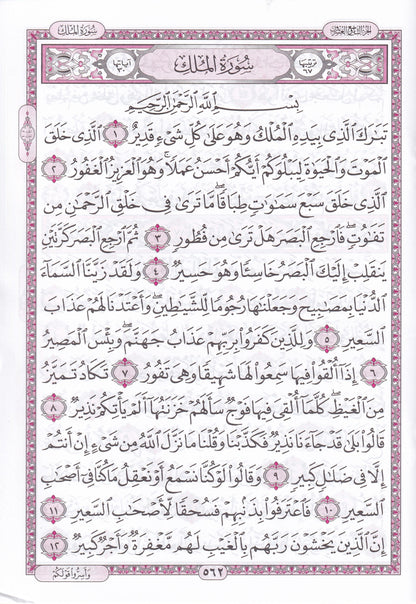 الجزء التاسع والعشرون
سورة الملك
ترتيبها ٦٧
سُورَةُ المُلْكِ
آياتها ٣٠
بِسْمِ اللَّهِ الرَّحْمَٰنِ الرَّحِيمِ
تَبَارَكَ الَّذِي بِيَدِهِ الْمُلْكُ وَهُوَ عَلَىٰ كُلِّ شَيْءٍ قَدِيرٌ ١ الَّذِي خَلَقَ
الْمَوْتَ وَالْحَيَوٰةَ لِيَبْلُوَكُمْ أَيُّكُمْ أَحْسَنُ عَمَلًا ۚ وَهُوَ الْعَزِيزُ الْغَفُورُ ٢
الَّذِي خَلَقَ سَبْعَ سَمَٰوَٰتٍ طِبَاقًا ۖ مَّا تَرَىٰ فِي خَلْقِ الرَّحْمَٰنِ مِن
تَفَٰوُتٍ ۖ فَارْجِعِ الْبَصَرَ هَلْ تَرَىٰ مِن فُطُورٍ ٣ ثُمَّ ارْجِعِ الْبَصَرَ كَرَّتَيْنِ
يَنقَلِبْ إِلَيْكَ الْبَصَرُ خَاسِئًا وَهُوَ حَسِيرٌ ٤ وَلَقَدْ زَيَّنَّا السَّمَاءَ
الدُّنْيَا بِمَصَٰبِيحَ وَجَعَلْنَٰهَا رُجُومًا لِّلشَّيَٰطِينِ ۖ وَأَعْتَدْنَا لَهُمْ عَذَابَ
السَّعِيرِ ٥ وَلِلَّذِينَ كَفَرُوا بِرَبِّهِمْ عَذَابُ جَهَنَّمَ ۖ وَبِئْسَ الْمَصِيرُ
٦ إِذَا أُلْقُوا فِيهَا سَمِعُوا لَهَا شَهِيقًا وَهِيَ تَفُورُ ٧ تَكَادُ تَمَيَّزُ
مِنَ الْغَيْظِ ۖ كُلَّمَا أُلْقِيَ فِيهَا فَوْجٌ سَأَلَهُمْ خَزَنَتُهَا أَلَمْ يَأْتِكُمْ نَذِيرٌ ٨
قَالُوا بَلَىٰ قَدْ جَاءَنَا نَذِيرٌ فَكَذَّبْنَا وَقُلْنَا مَا نَزَّلَ اللَّهُ مِن شَيْءٍ إِنْ أَنتُمْ
إِلَّا فِي ضَلَٰلٍ كَبِيرٍ ٩ وَقَالُوا لَوْ كُنَّا نَسْمَعُ أَوْ نَعْقِلُ مَا كُنَّا فِي أَصْحَٰبِ
السَّعِيرِ ١٠ فَاعْتَرَفُوا بِذَنبِهِمْ فَسُحْقًا لِّأَصْحَٰبِ السَّعِيرِ ١١
إِنَّ الَّذِينَ يَخْشَوْنَ رَبَّهُم بِالْغَيْبِ لَهُم مَّغْفِرَةٌ وَأَجْرٌ كَبِيرٌ ١٢
٥٦٢
وَأَسِرُّوا قَوْلَكُمْ